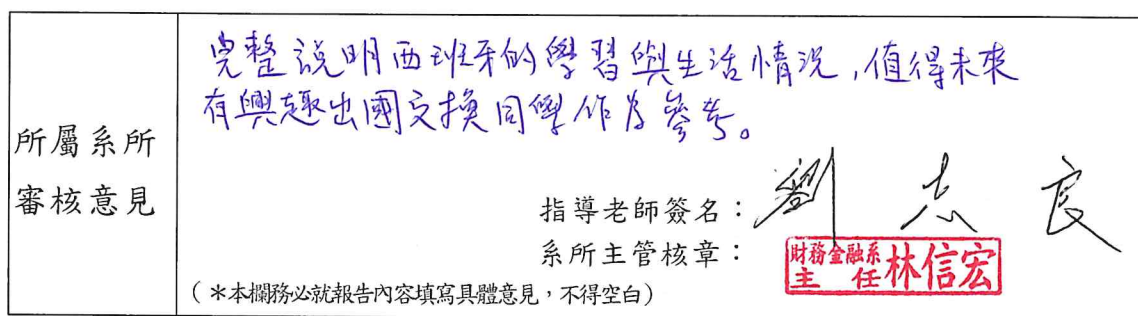 完整說明西班牙的學習與生活情況,值得未來
有興趣出國交換同學作為參考。
所屬系所
審核意見
指導老師簽名：劉志良
系所主管核章：財務金融系主任林信宏
（＊本欄務必就報告內容填寫具體意見，不得空白）